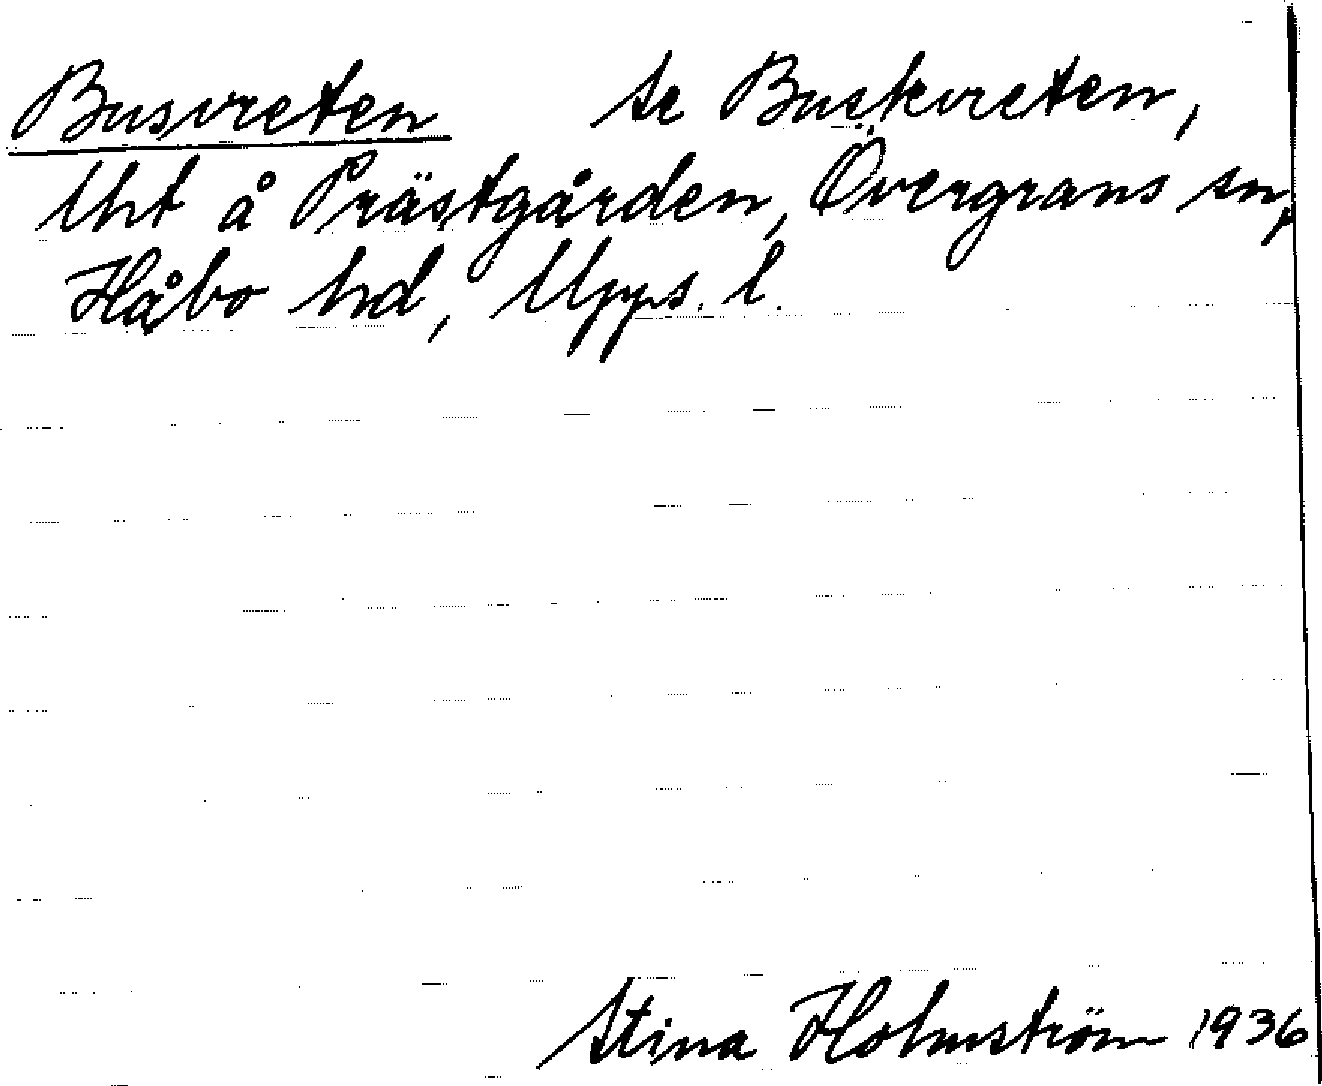 Busvreten se Buskvreten,
lht å Prästgården, Övergrans sn,
Håbo hd, Upps. l.
Stina Holmström 1936